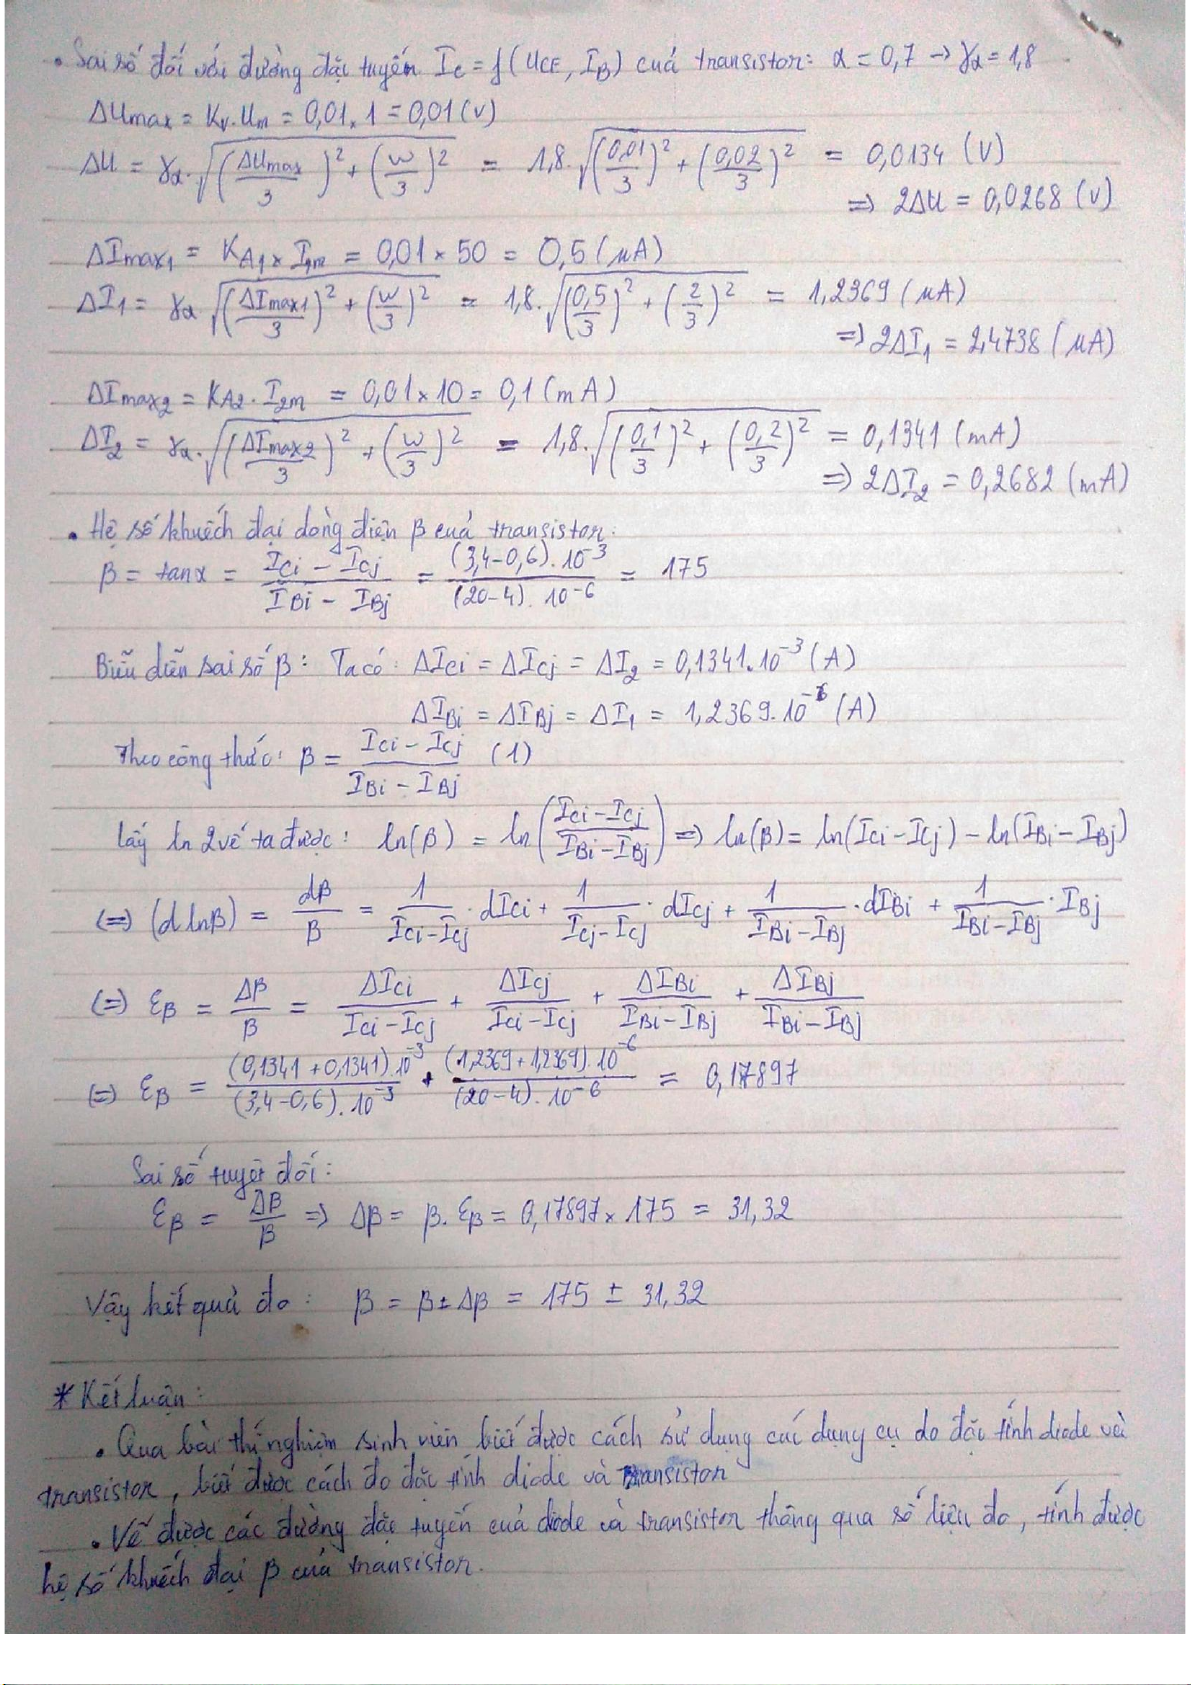 • Sai số đối với đường đặc tuyến I_C = f(U_CE, I_B) của transistor: α = 0,7 → γ_α = 1,8
ΔU_max = K_V . U_m = 0,01 . 1 = 0,01 (V)
ΔU = γ_α . √((ΔU_max/3)² + (w/3)²) = 1,8 . √((0,01/3)² + (0,02/3)²) = 0,0134 (V)
=> 2ΔU = 0,0268 (V)
ΔI_max1 = K_A1 × I_1m = 0,01 × 50 = 0,5 (μA)
ΔI_1 = γ_α . √((ΔI_max1/3)² + (w/3)²) = 1,8 . √((0,5/3)² + (2/3)²) = 1,2369 (μA)
=> 2ΔI_1 = 2,4738 (μA)
ΔI_max2 = K_A2 . I_2m = 0,01 × 10 = 0,1 (mA)
ΔI_2 = γ_α . √((ΔI_max2/3)² + (w/3)²) = 1,8 . √((0,1/3)² + (0,2/3)²) = 0,1341 (mA)
=> 2ΔI_2 = 0,2682 (mA)
• Hệ số khuếch đại dòng điện β của transistor:
β = tanx = (I_Ci - I_Cj)/(I_Bi - I_Bj) = ((3,4-0,6).10⁻³)/((20-4).10⁻⁶) = 175
Biểu diễn sai số β: Ta có: ΔI_Ci = ΔI_Cj = ΔI_2 = 0,1341.10⁻³ (A)
ΔI_Bi = ΔI_Bj = ΔI_1 = 1,2369.10⁻⁶ (A)
Theo công thức: β = (I_Ci - I_Cj)/(I_Bi - I_Bj) (1)
Lấy ln 2 vế ta được: ln(β) = ln((I_Ci - I_Cj)/(I_Bi - I_Bj)) => ln(β) = ln(I_Ci - I_Cj) - ln(I_Bi - I_Bj)
(=) (d lnβ) = dβ/β = 1/(I_Ci - I_Cj) . dI_Ci + 1/(I_Cj - I_Cj) . dI_Cj + 1/(I_Bi - I_Bj) . dI_Bi + 1/(I_Bi - I_Bj) . I_Bj
(=) ε_β = Δβ/β = ΔI_Ci/(I_Ci - I_Cj) + ΔI_Cj/(I_Ci - I_Cj) + ΔI_Bi/(I_Bi - I_Bj) + ΔI_Bj/(I_Bi - I_Bj)
(=) ε_β = ((0,1341 + 0,1341).10⁻³)/((3,4-0,6).10⁻³) + ((1,2369+1,2369).10⁻⁶)/((20-4).10⁻⁶) = 0,17897
Sai số tuyệt đối:
ε_β = Δβ/β => Δβ = β . ε_β = 0,17897 × 175 = 31,32
Vậy kết quả đo: β = β ± Δβ = 175 ± 31,32
* Kết luận:
• Qua bài thí nghiệm sinh viên biết được cách sử dụng các dụng cụ đo đặc tính diode và
transistor, biết được cách đo đặc tính diode và Transistor
• Vẽ được các đường đặc tuyến của diode và transistor thông qua số liệu đo, tính được
hệ số khuếch đại β của transistor.